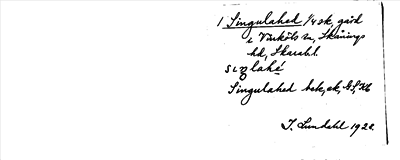 1 Singulahed 1/4 sk, gård
i Vinköls sn, Skånings
hd, Skarabl.
Singulahed bek, ek, GS, Kb
I. Lundahl 1922.